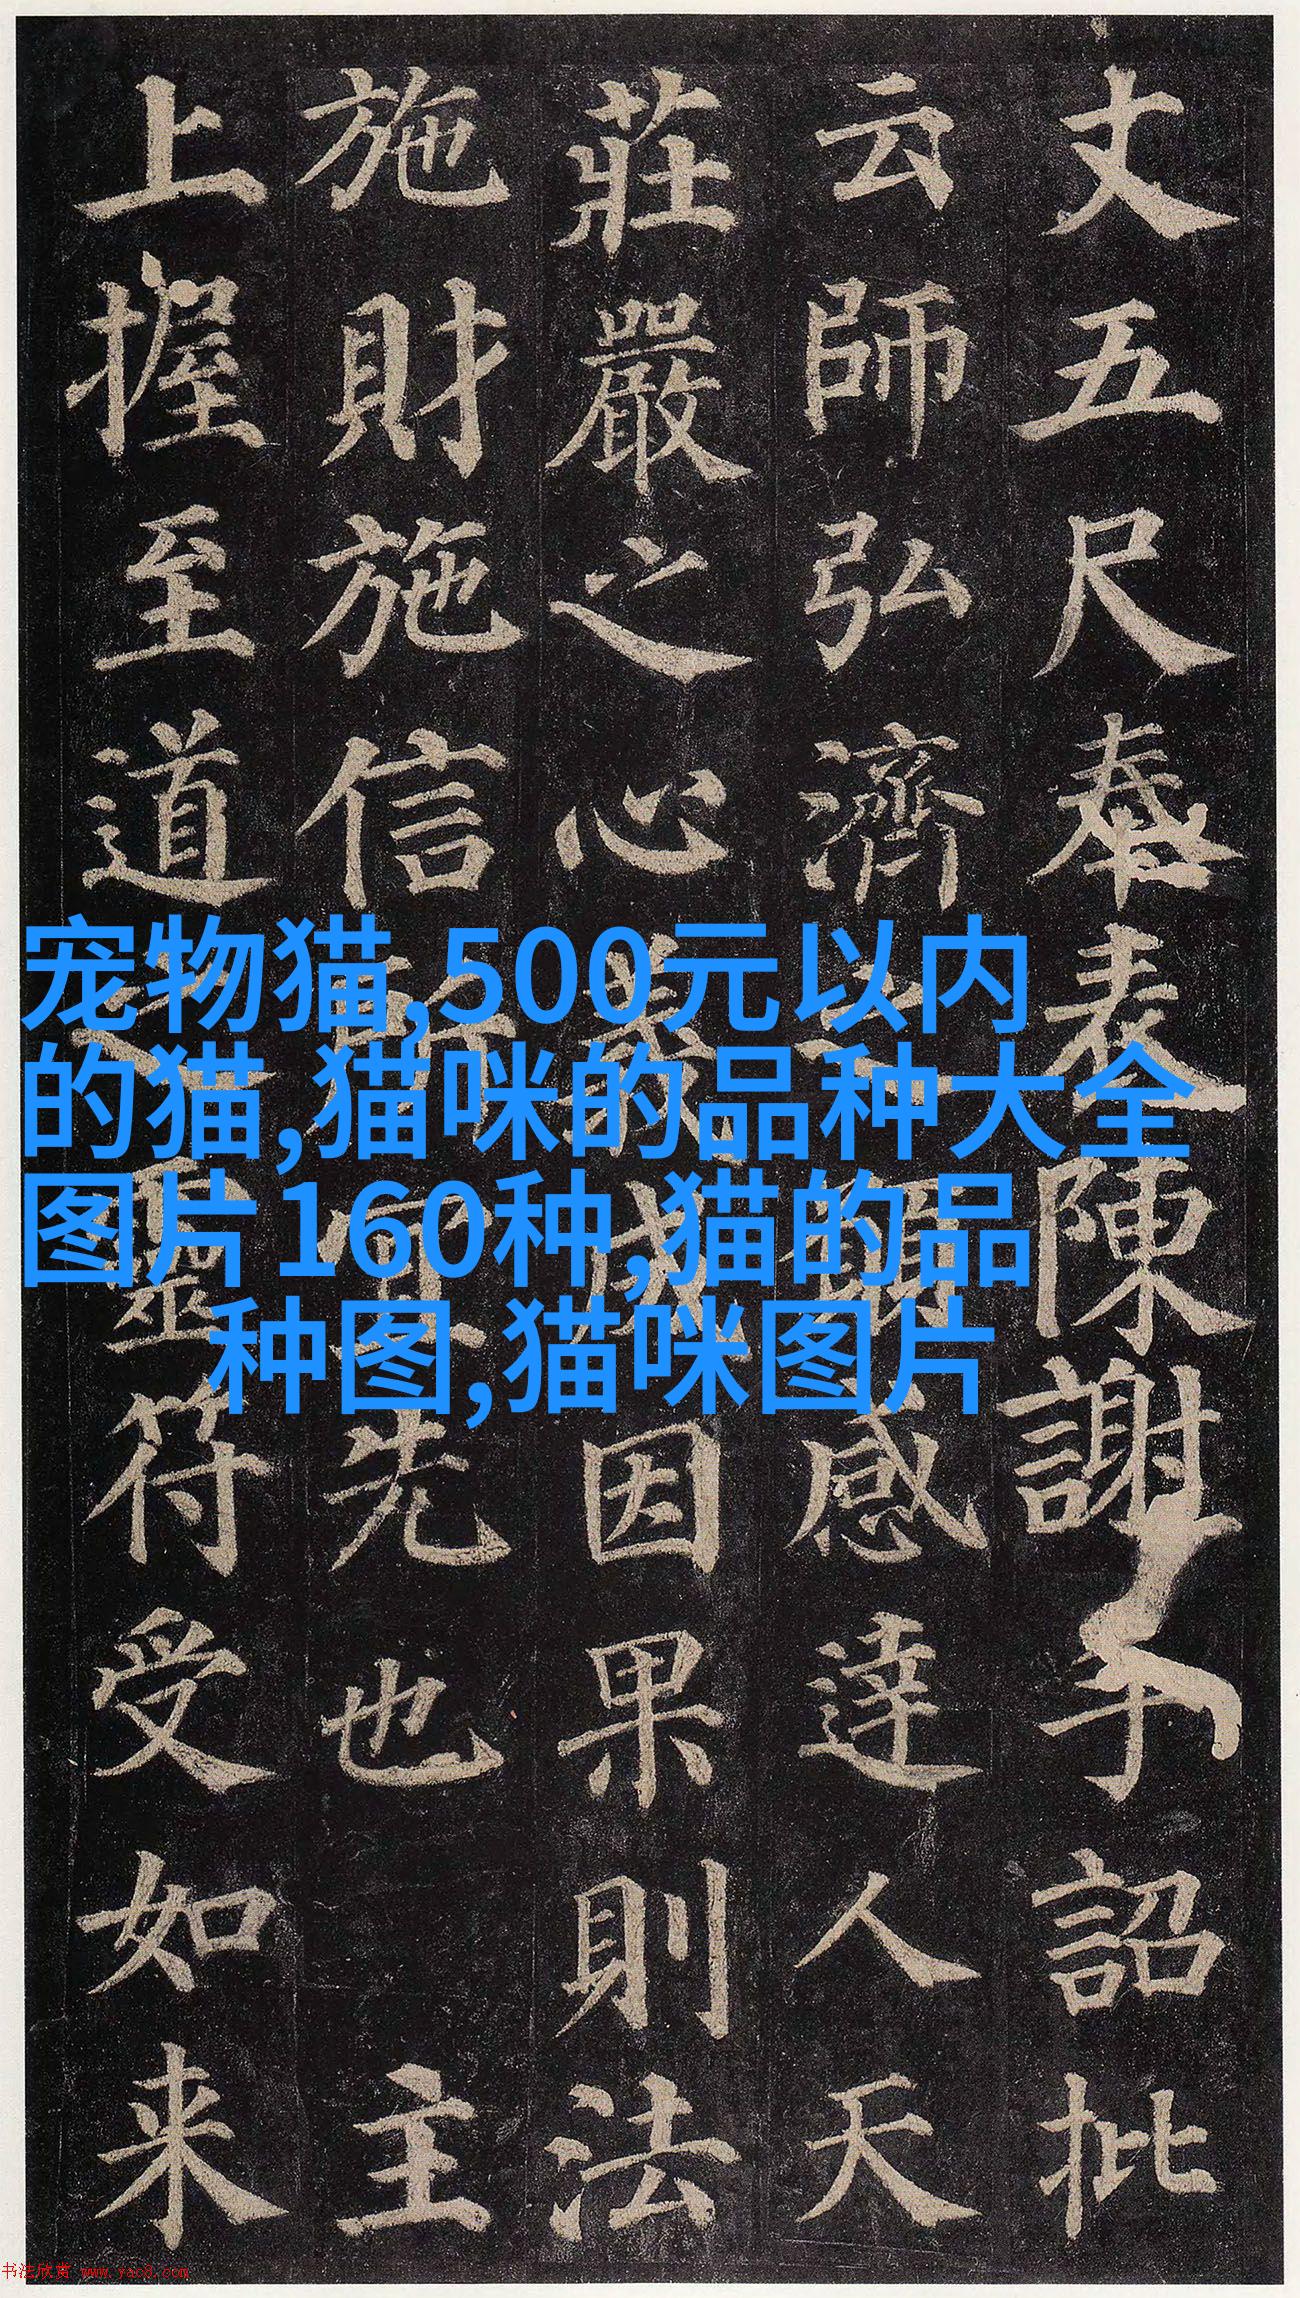 丈五尺奉表陳謝手詔批
云師弘濟感達人天
莊嚴之心義成因果則法
施財施信所宜先也 主
上握至道之靈符受如来
宠物猫,500元以内
的猫,猫咪的品种大全
图片160种,猫的品
种图,猫咪图片
书法欣赏 www.yac8.com